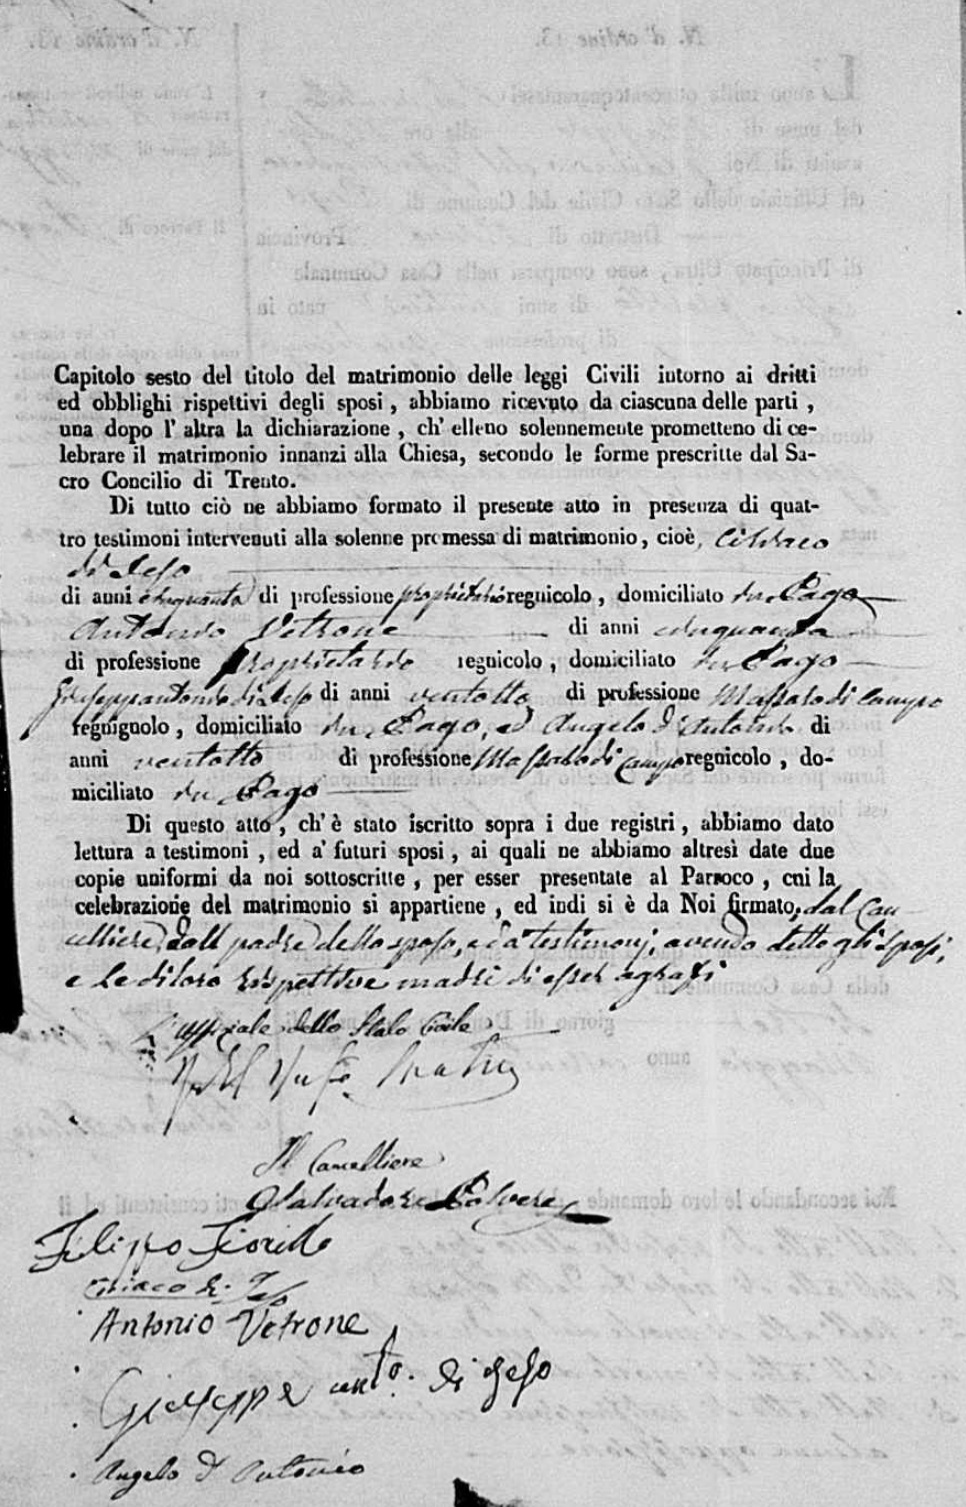 Capitolo sesto del titolo del matrimonio delle leggi Civili intorno ai dritti
ed obblighi rispettivi degli sposi , abbiamo ricevuto da ciascuna delle parti ,
una dopo l' altra la dichiarazione , ch' elleno solennemente prometteno di ce-
lebrare il matrimonio innanzi alla Chiesa, secondo le forme prescritte dal Sa-
cro Concilio di Trento.
Di tutto ciò ne abbiamo formato il presente atto in presenza di quat-
tro testimoni intervenuti alla solenne promessa di matrimonio, cioè, Ciriaco
di Jeso
di anni cinquanta di professione proprietario regnicolo , domiciliato in Pago
Antonio Vetrone di anni cinquanta
di professione proprietario regnicolo , domiciliato in Pago
Giuseppantonio di Jeso di anni ventotto di professione Massaro di Campo
regnignolo , domiciliato in Pago, ed Angelo d'Antonio di
anni ventotto di professione Massaro di Campo regnicolo , do-
miciliato in Pago
Di questo atto , ch' è stato iscritto sopra i due registri , abbiamo dato
lettura a testimoni , ed a' futuri sposi , ai quali ne abbiamo altresì date due
copie uniformi da noi sottoscritte , per esser presentate al Parroco , cui la
celebrazione del matrimonio si appartiene , ed indi si è da Noi firmato, dal Can-
celliere, dall padre dello sposo, ed a' testimonj, avendo detto gli sposi,
e le di loro rispettive madri di esser
L'Uffiziale dello Stato Civile
Il Cancelliere
Salvadore Polvere
Filippo Fiorillo
Ciriaco di Jeso
Antonio Vetrone
Giuseppe anto. di Jeso
Angelo d'Antonio